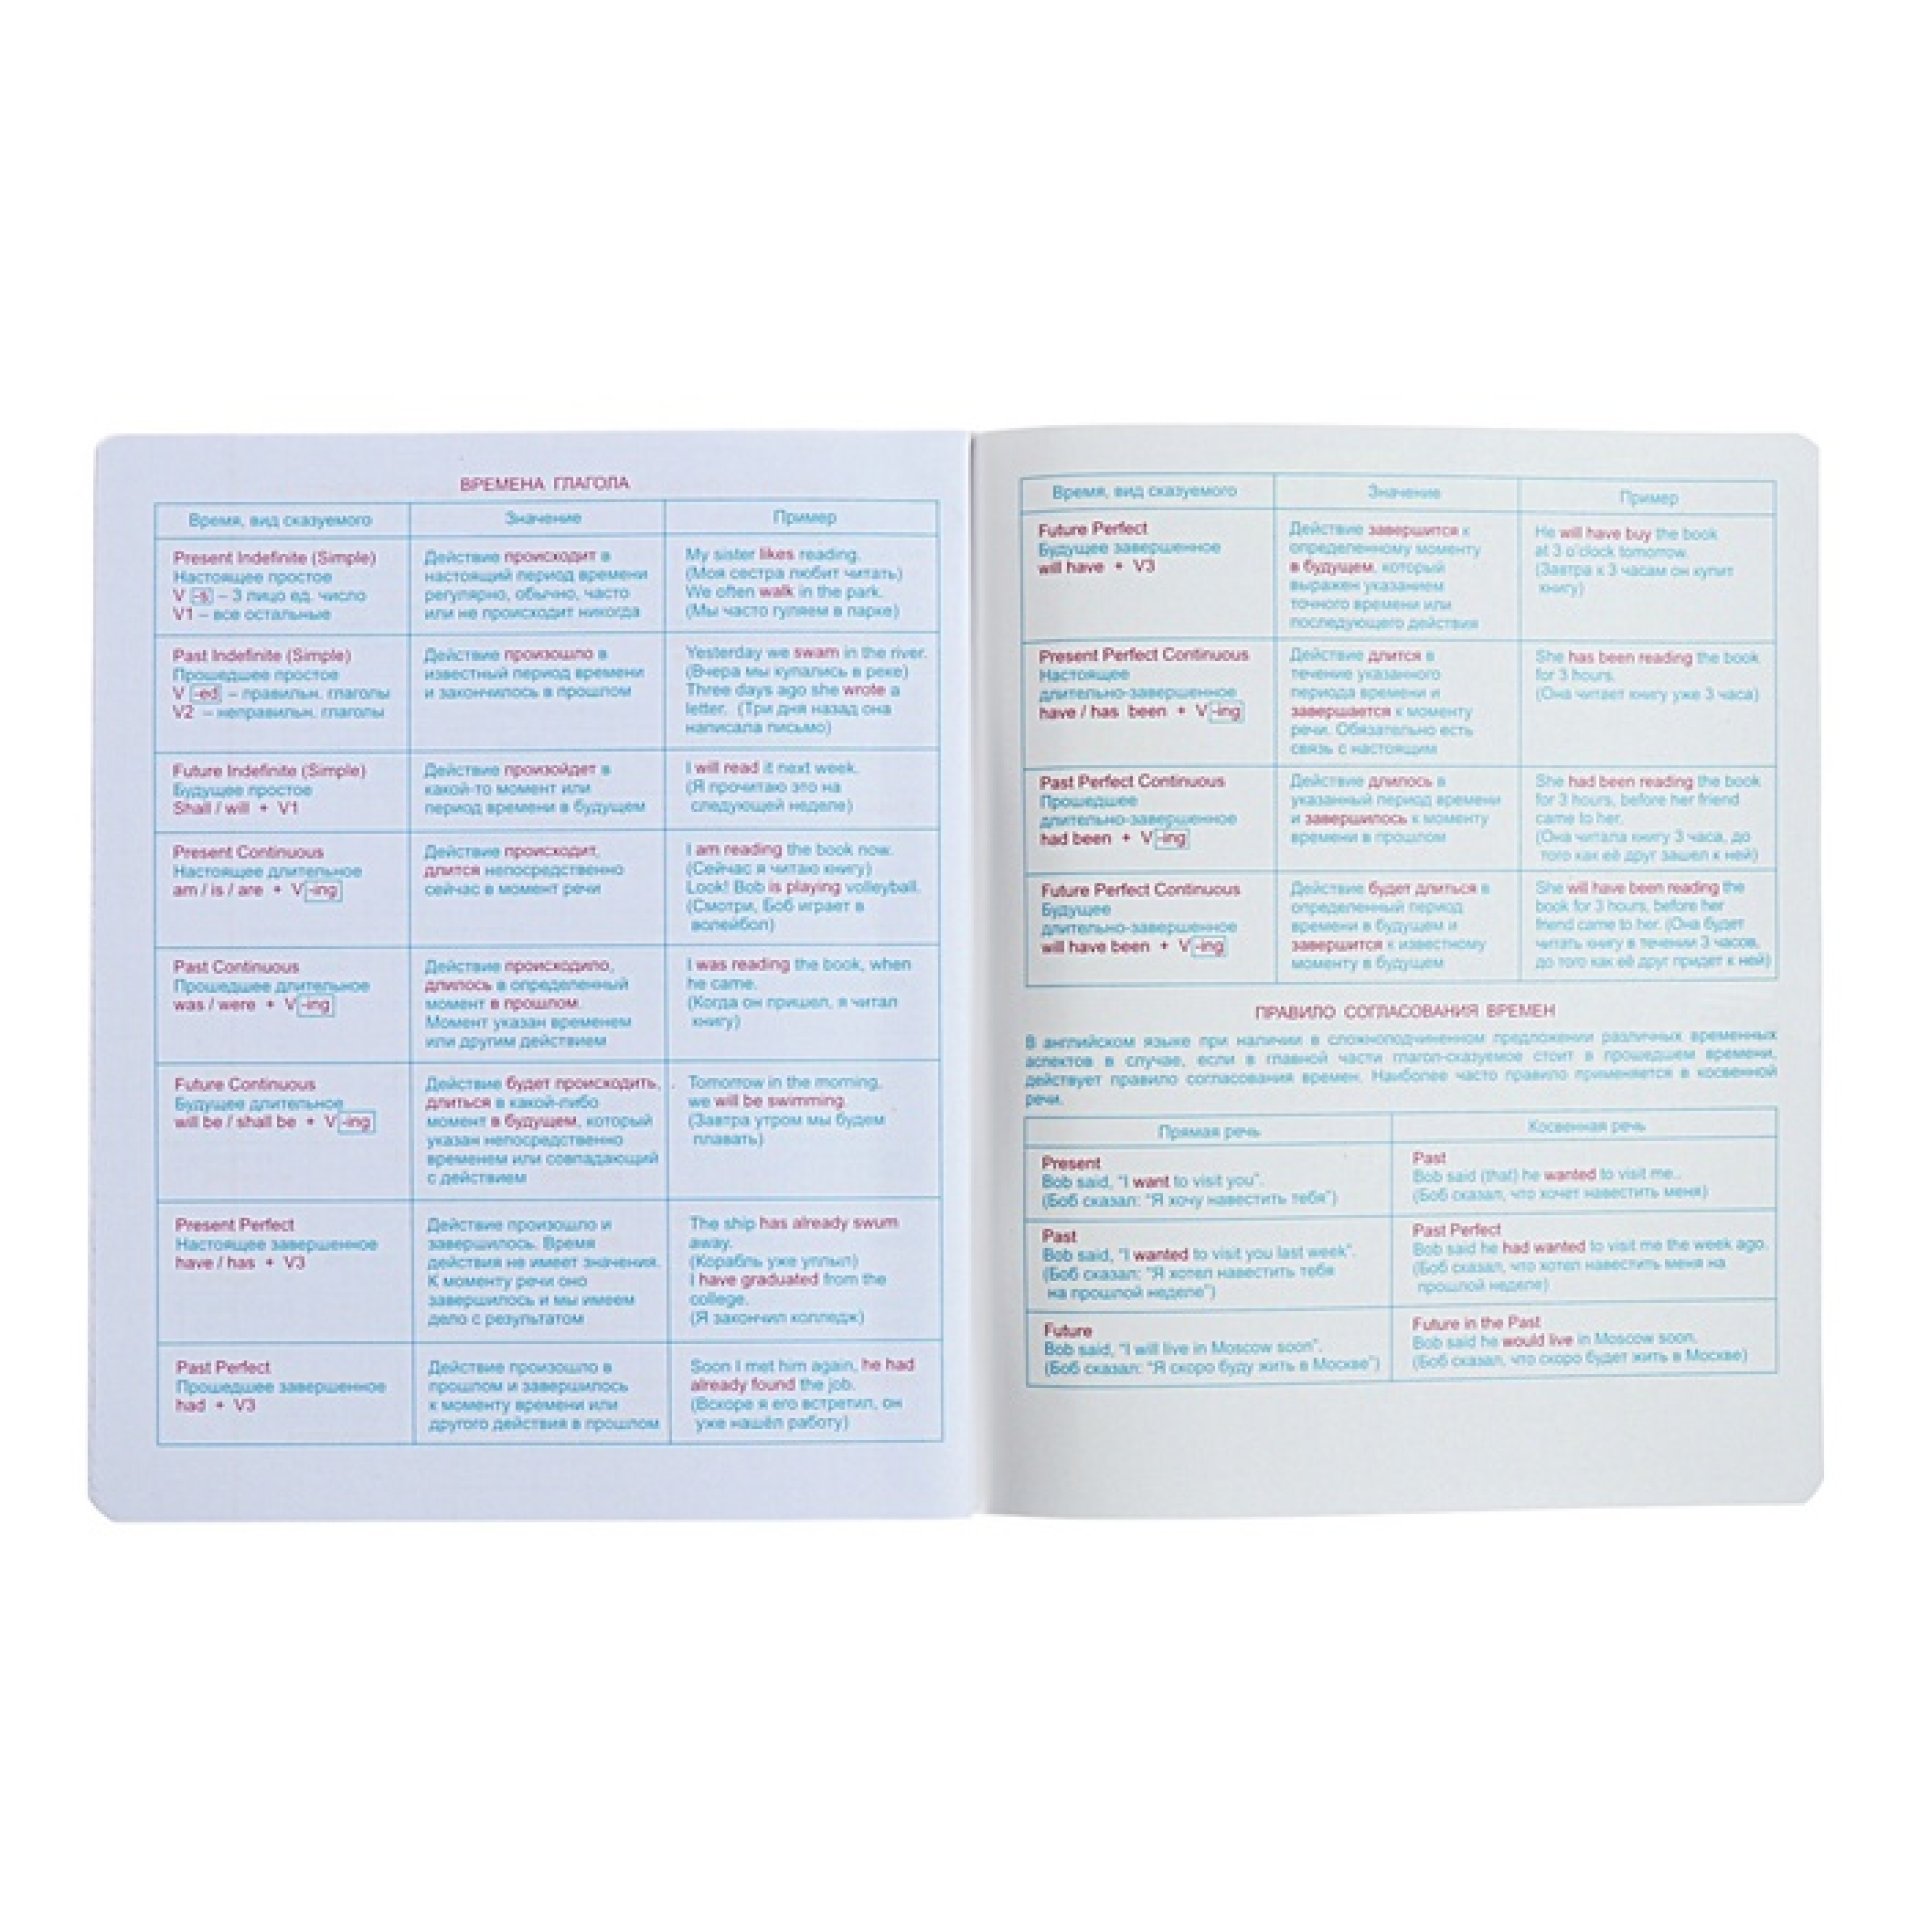 ВРЕМЕНА ГЛАГОЛА
Время, вид сказуемого Значение Пример
Present Indefinite (Simple)
Настоящее простое
V -s – 3 лицо ед. число
V1 – все остальные
Действие происходит в
настоящий период времени
регулярно, обычно, часто
или не происходит никогда
My sister likes reading.
(Моя сестра любит читать)
We often walk in the park.
(Мы часто гуляем в парке)
Past Indefinite (Simple)
Прошедшее простое
V -ed – правильн. глаголы
V2 – неправильн. глаголы
Действие произошло в
известный период времени
и закончилось в прошлом
Yesterday we swam in the river.
(Вчера мы купались в реке)
Three days ago she wrote a
letter. (Три дня назад она
написала письмо)
Future Indefinite (Simple)
Будущее простое
Shall / will + V1
Действие произойдет в
какой-то момент или
период времени в будущем
I will read it next week.
(Я прочитаю это на
следующей неделе)
Present Continuous
Настоящее длительное
am / is / are + V -ing
Действие происходит,
длится непосредственно
сейчас в момент речи
I am reading the book now.
(Сейчас я читаю книгу)
Look! Bob is playing volleyball.
(Смотри, Боб играет в
волейбол)
Past Continuous
Прошедшее длительное
was / were + V -ing
Действие происходило,
длилось в определенный
момент в прошлом.
Момент указан временем
или другим действием
I was reading the book, when
he came.
(Когда он пришел, я читал
книгу)
Future Continuous
Будущее длительное
will be / shall be + V -ing
Действие будет происходить,
длиться в какой-либо
момент в будущем, который
указан непосредственно
временем или совпадающий
с действием
Tomorrow in the morning,
we will be swimming.
(Завтра утром мы будем
плавать)
Present Perfect
Настоящее завершенное
have / has + V3
Действие произошло и
завершилось. Время
действия не имеет значения.
К моменту речи оно
завершилось и мы имеем
дело с результатом
The ship has already swum
away.
(Корабль уже уплыл)
I have graduated from the
college.
(Я закончил колледж)
Past Perfect
Прошедшее завершенное
had + V3
Действие произошло в
прошлом и завершилось
к моменту времени или
другого действия в прошлом
Soon I met him again, he had
already found the job.
(Вскоре я его встретил, он
уже нашёл работу)
Время, вид сказуемого Значение Пример
Future Perfect
Будущее завершенное
will have + V3
Действие завершится к
определенному моменту
в будущем, который
выражен указанием
точного времени или
последующего действия
He will have buy the book
at 3 o'clock tomorrow.
(Завтра к 3 часам он купит
книгу)
Present Perfect Continuous
Настоящее
длительно-завершенное
have / has been + V -ing
Действие длится в
течение указанного
периода времени и
завершается к моменту
речи. Обязательно есть
связь с настоящим
She has been reading the book
for 3 hours.
(Она читает книгу уже 3 часа)
Past Perfect Continuous
Прошедшее
длительно-завершенное
had been + V -ing
Действие длилось в
указанный период времени
и завершилось к моменту
времени в прошлом
She had been reading the book
for 3 hours, before her friend
came to her.
(Она читала книгу 3 часа, до
того как её друг зашел к ней)
Future Perfect Continuous
Будущее
длительно-завершенное
will have been + V -ing
Действие будет длиться в
определенный период
времени в будущем и
завершится к известному
моменту в будущем
She will have been reading the
book for 3 hours, before her
friend came to her. (Она будет
читать книгу в течении 3 часов,
до того как её друг придет к ней)
ПРАВИЛО СОГЛАСОВАНИЯ ВРЕМЕН
В английском языке при наличии в сложноподчиненном предложении различных временных
аспектов в случае, если в главной части глагол-сказуемое стоит в прошедшем времени,
действует правило согласования времен. Наиболее часто правило применяется в косвенной
речи.
Прямая речь Косвенная речь
Present
Bob said, "I want to visit you".
(Боб сказал: "Я хочу навестить тебя")
Past
Bob said (that) he wanted to visit me..
(Боб сказал, что хочет навестить меня)
Past
Bob said, "I wanted to visit you last week".
(Боб сказал: "Я хотел навестить тебя
на прошлой неделе")
Past Perfect
Bob said he had wanted to visit me the week ago.
(Боб сказал, что хотел навестить меня на
прошлой неделе)
Future
Bob said, "I will live in Moscow soon".
(Боб сказал: "Я скоро буду жить в Москве")
Future in the Past
Bob said he would live in Moscow soon.
(Боб сказал, что скоро будет жить в Москве)